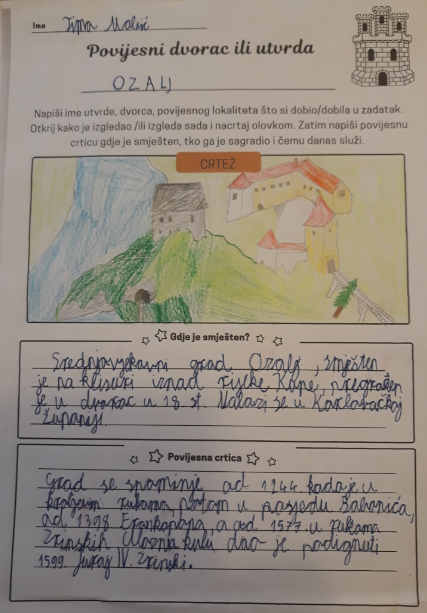 Ime Tijana Malić
Povijesni dvorac ili utvrda
OZALJ
Napiši ime utvrde, dvorca, povijesnog lokaliteta što si dobio/dobila u zadatak.
Otkrij kako je izgledao /ili izgleda sada i nacrtaj olovkom. Zatim napiši povijesnu
crticu gdje je smješten, tko ga je sagradio i čemu danas služi.
CRTEŽ
Gdje je smješten?
Srednjovjekovni grad Ozalj, smješten
je na klisuri iznad rijeke Kupe, pregrađen
je u dvorac u 18. st. Nalazi se u Karlovačkoj
županiji.
Povijesna crtica
Grad se spominje od 1244. kada je u
kraljevim rukama, potom u posjedu Babonića,
od 1398. Frankopana, a od 1577. u rukama
Zrinskih. Ulaznu kulu dao je podignuti
1599. Juraj IV. Zrinski.